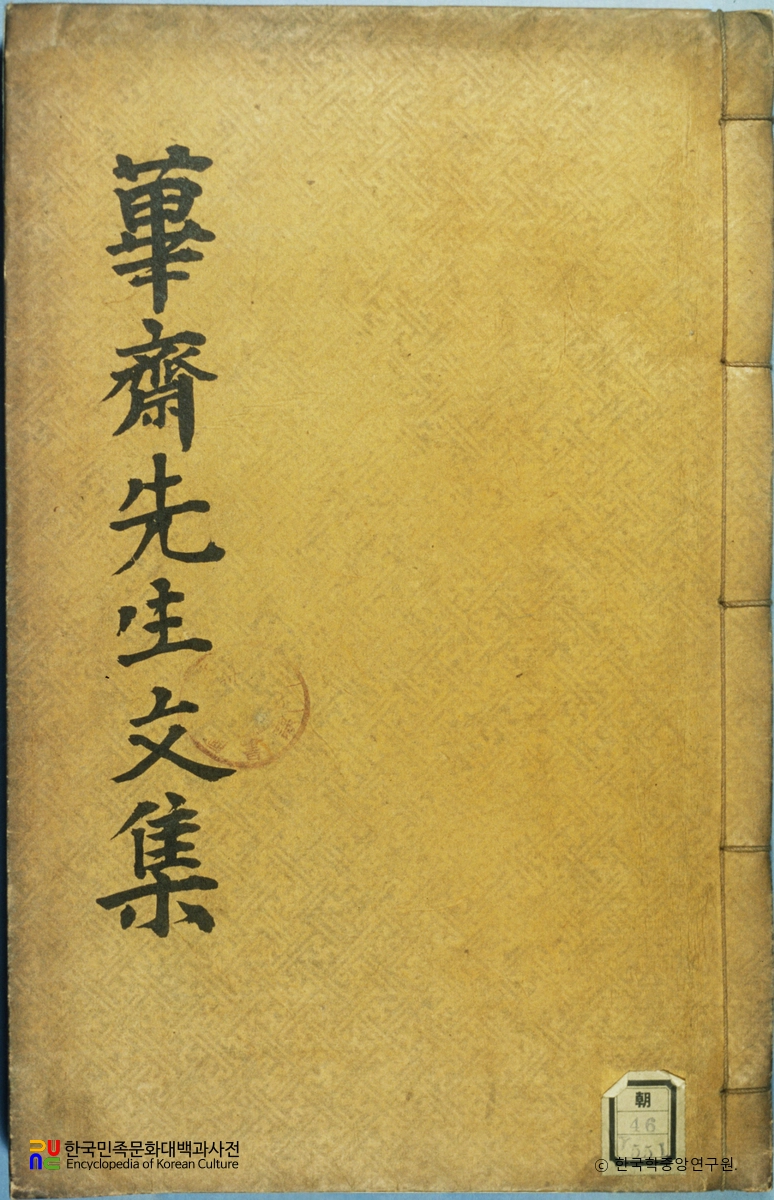 蓽齋先生文集
朝
46
한국민족문화대백과사전
Encyclopedia of Korean Culture
© 한국학중앙연구원.